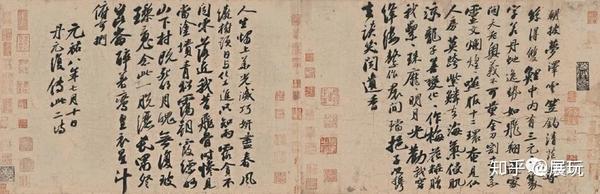 朝披夢澤雲笠釣清茫茫尋
絲得雙鯉中內有三元章篆
字若丹蛇逸勢如飛翔還家
問天老奧義不可量金刀割青素
靈文爛煌煌嚥服十二環奄見仙
人房莫跨紫鱗去海氣侵肌
涼龍子善變化化作梅花妝贈
我纍纍珠靡靡明月光勸我穿
絳縷系作裙間襠挹子以攜
去談笑聞遺香
人生燭上華光滅巧妍盡春風
繞樹頭日與化工進只知雨露貪不
聞零落近我昔飛骨時慘見
當塗墳青松靄朝霞縹緲
山下村既死明月魄無復玻
璃魂念此一脫灑長嘯祭
崑崙醉著鸞皇衣星斗
俯可捫
元祐八年七月十日
丹元復傳此二詩
知乎 @展玩